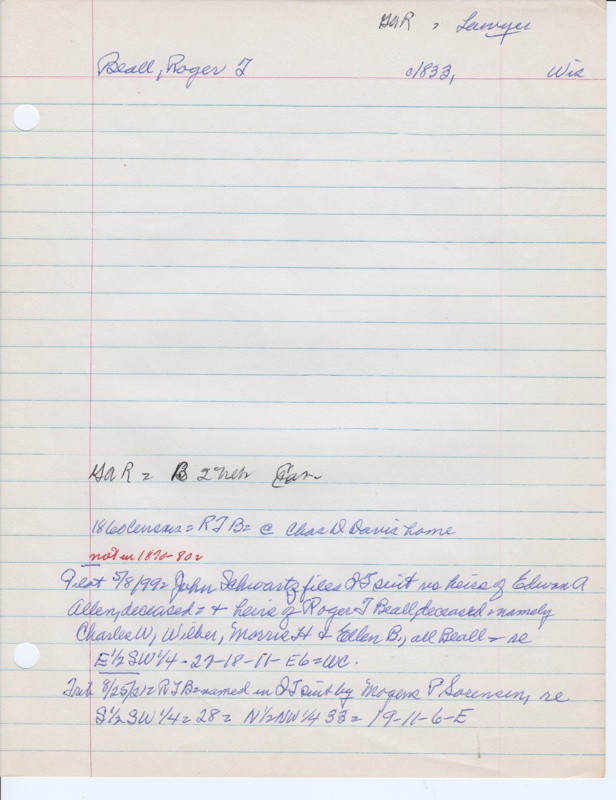 GAR, Lawyer
Beall, Roger T c1833, Wis
GAR = B 2 Neb Cav
1860 census = R T B = @ Chas D Davis home
not in 1870-80 =
5/8/99 = John Schwartz files QT suit vs heirs of Edwin A
Allen, deceased = + heirs of Roger T Beall, deceased = namely
Charles W, Wilber, Morris H + Ellen B, all Beall = re
E½ SW¼ - 27-18-11- E6 = WC.
Trib 9/25/21 = R T B = named in QT suit by Mogens P Sorensen, re
S½ SW¼ = 28 = N½ NW¼ 33 = 19-11-6-E